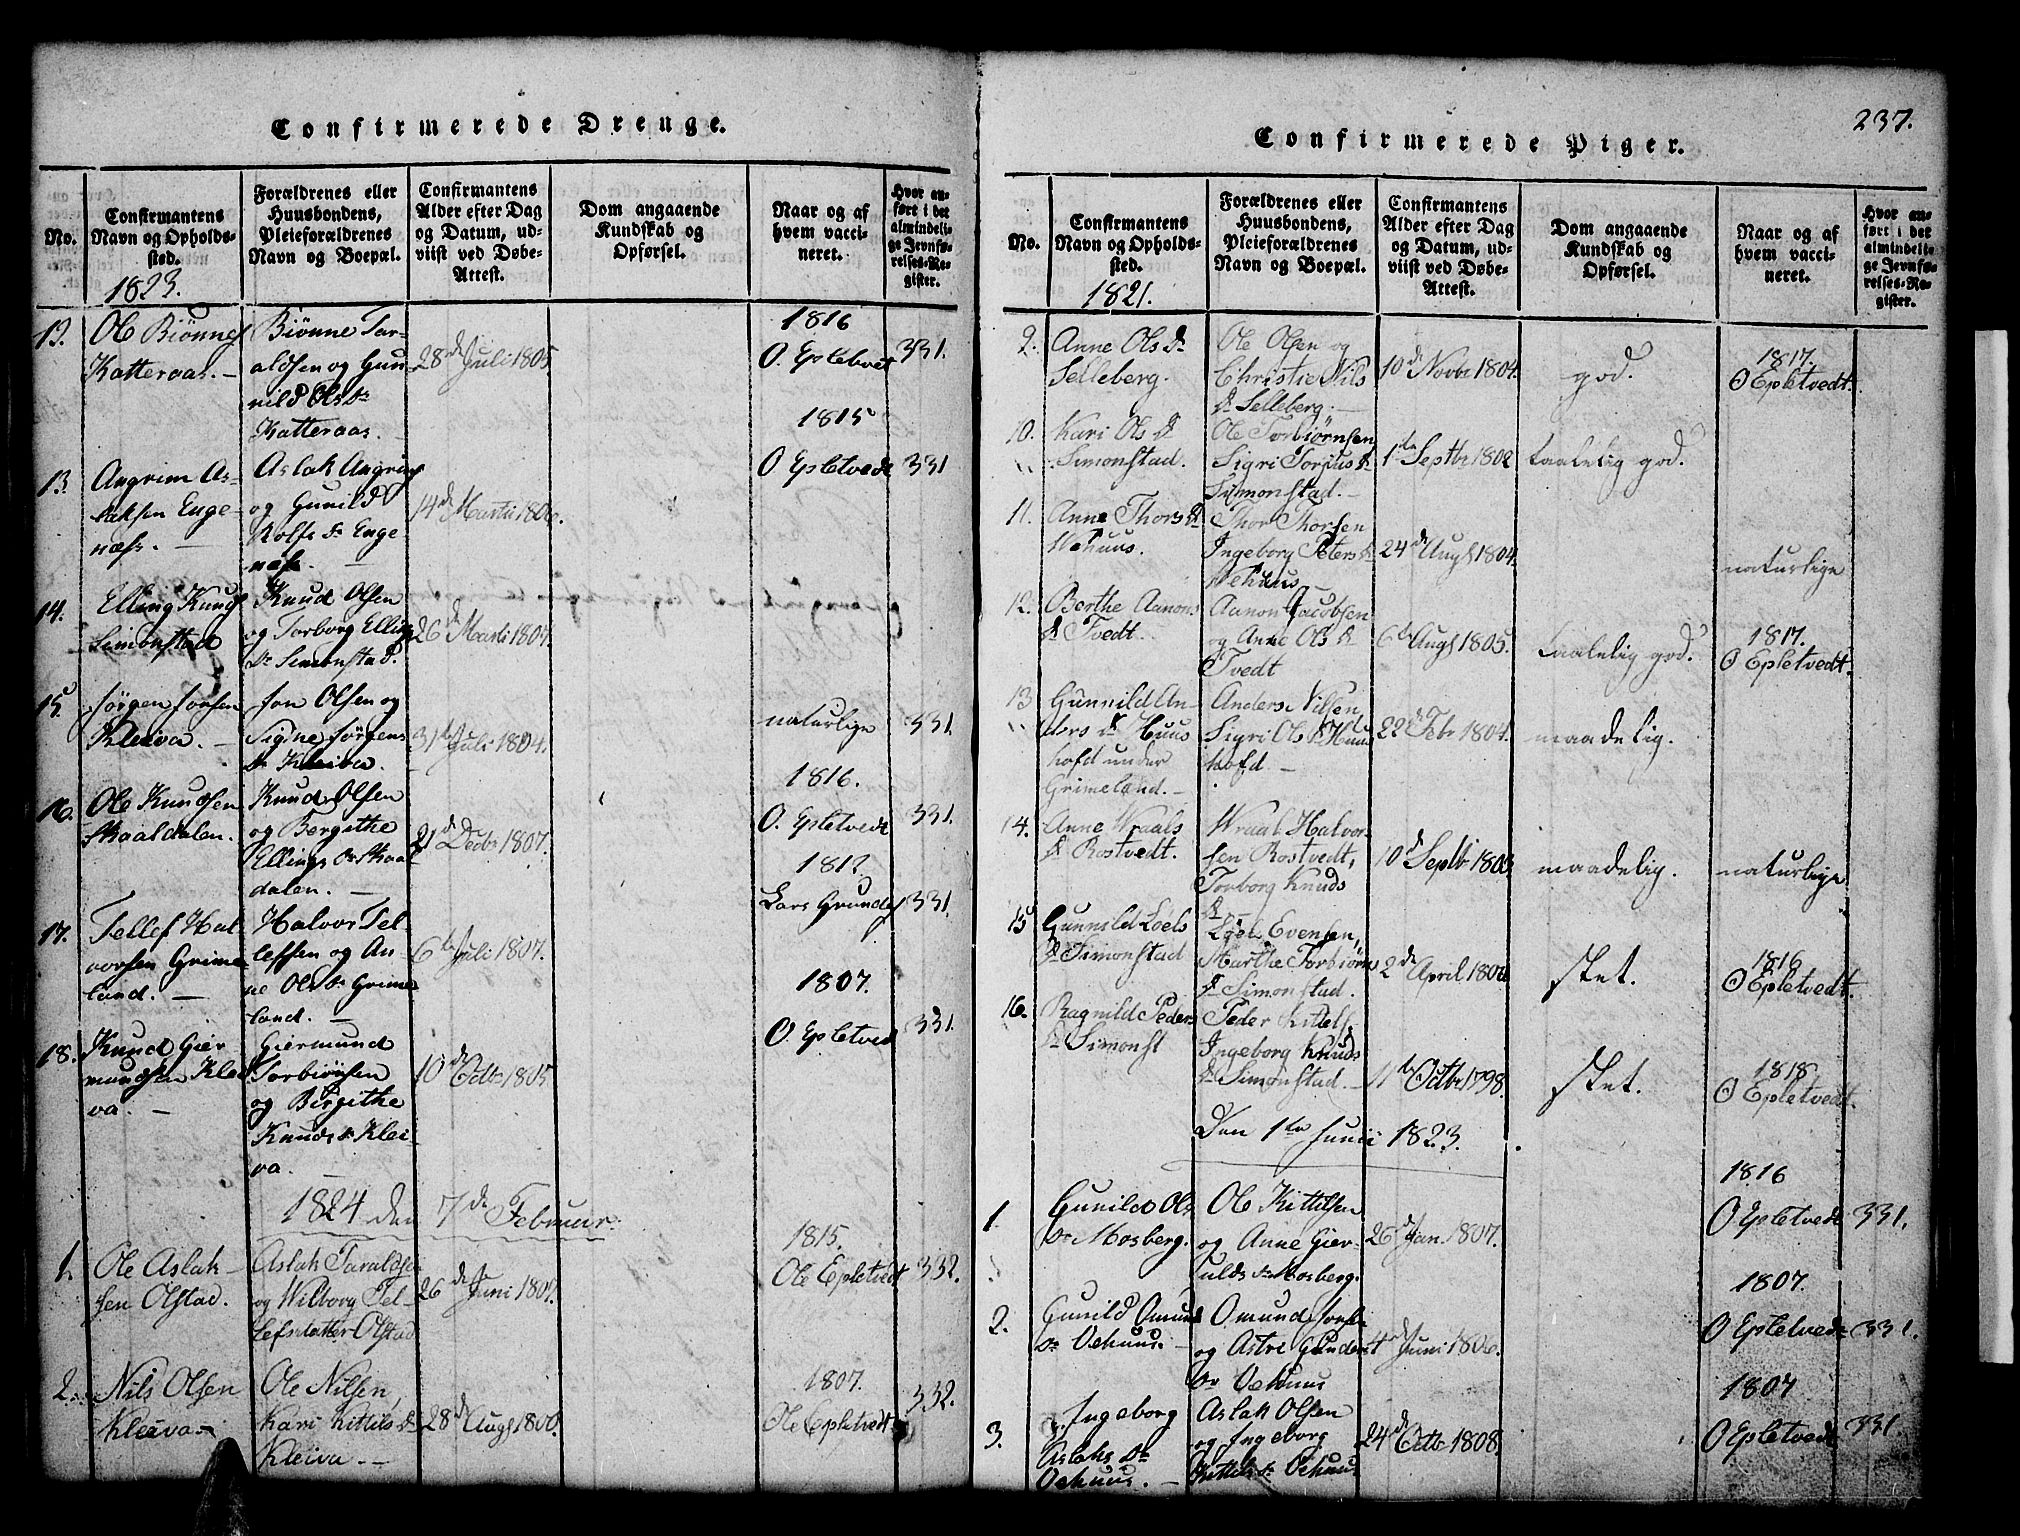 Confirmerede Drenge.
No.
Confirmantens
Navn og Opholds-
sted.
1823.
Forældrenes eller
Huusbondens,
Pleieforældrenes
Navn og Boepæl.
Confirmantens
Alder efter Dag
og Datum, ud-
viist ved Døbe-
Attest.
Dom angaaende
Kundskab og
Opførsel.
Naar og af
hvem vacci-
neret.
Hvor an-
ført i det
almindeli-
ge Jevnfø-
relses-Re-
gister.
Ole Biønnes
Katteraas. -
Biønne Tar-
aldsen og Gun
nild Ols Dr
Katteraas.
28de Juli 1805
1816
O. Epletvet
331.
13.
Angrim As-
laksen Enge-
næss. -
Aslak Angrims
og Gunild
Rolfs Dr Enge
næss. -
14de Marti 1806.
1815
O Epletvedt
331
14.
Elling Knuds
Simonstad
Knud Olsen
og Torborg Ellings
Dr Simonstad.
26de Marti 1807.
15.
Jørgen Jonsen
Kleiva. -
Jon Olsen og
Signe Jørgens
Dr Kleiva.
31te Juli 1804.
naturlige
331.
16.
Ole Knudsen
Skaaldalen.
Knud Olsen
og Bergithe
Ellings Dr Skaal
dalen. -
21de Decbr 1807.
1816.
O. Epletvedt
331.
17.
Tellef Hal
vorsen Grime
land. -
Halvor Tel-
lefsen og An-
ne Ols Dr Grime
land. -
6te Juli 1807.
1812.
Lars Grundes
331.
18.
Knud Gier
mundsen Klei
va. -
Giermund
Torbiønsen
og Birgithe
Knuds Dr Klei-
va. -
10de Octbr 1805
1807.
O Epletved
331.
1824 den 7de Februar.
1.
Ole Aslak-
sen Olstad.
Aslak Taraldsen
og Wilborg Tel-
lefsdatter Olstad
26de Juni 1807.
1815.
Ole Epletvedt
332.
2.
Nils Olsen
Kleiva -
Ole Nilsen,
Kari Kittils Dr
Kleiva. -
28de Augs 1806.
1807.
Ole Epletvedt
332.
237.
Confirmerede Piger.
No.
Confirmantens
Navn og Opholds-
sted.
1821.
Forældrenes eller
Huusbondens,
Pleieforældrenes
Navn og Boepæl.
Confirmantens
Alder efter Dag
og Datum, ud-
viist ved Døbe-
Attest.
Dom angaaende
Kundskab og
Opførsel.
Naar og af
hvem vacci-
neret.
Hvor an-
ført i det
almindeli-
ge Jevnfø-
relses-Re-
gister.
9.
Anne Ols Dr
Selleberg.
Ole Olsen og
Christie Nils
Dr Selleberg. -
10de Novbr 1804.
god.
1817.
O Epletvedt.
10.
Kari Ols Dr
Simonstad.
Ole Torbiørnsen
Sigri Torjus Dr
Simonstad. -
1te Septbr 1802
taalelig god.
11.
Anne Thors Dr
Vehuus.
Thor Thorsen
Ingeborg Peters Dr
Vehuus
24de Augs 1804.
naturlige
12.
Berthe Aanons
Dr Tvedt.
Aanon Jacobsen
og Anne Ols Dr
Tvedt
6te Augs 1805.
taalelig god.
1817.
O Epletvedt.
13
Gunnild An-
ders Dr Huus
hofd under
Grimeland. -
Anders Nilsen,
Sigri Ols Dr Huus
hofd. -
22de Febr 1804.
maadelig.
14.
Anne Wraals
Dr Rostvedt.
Wraal Halvor-
sen Rostvedt,
Torborg Knuds
Dr -
10de Septbr 1803
maadelig.
naturlige
15
Gunnild Loels
Dr Simonstad
Loel Evensen,
Marthe Torbiørns
Dr Simonstad.
2de April 1806
slet.
1816
O Epletvedt.
16.
Ragnild Peders
Dr Simonst
Peder Kittels,
Ingeborg Knuds
Dr Simonstad. -
11te Octbr 1798.
slet.
1818
O Epletvedt.
Den 1te Junii 1823.
1.
Gunild Ols
Dr Mosberg.
Ole Kittilsen
og Anne Gier-
ulds Dr Mosberg.
26de Jan. 1807.
1816
O Epletvedt
331.
2.
Gunild Omunds
Dr Vehuus. -
Omund Jonsen
og Astri Gunders
Dr Vehuus
4de Juni 1806.
1807.
O Epletvedt
331.
3.
Ingeborg
Aslaks Dr
Vehuus. -
Aslak Olsen
og Ingeborg
Kittils Dr Vehuus
24de Octbr 1808.
1807
O Epletvedt
331.